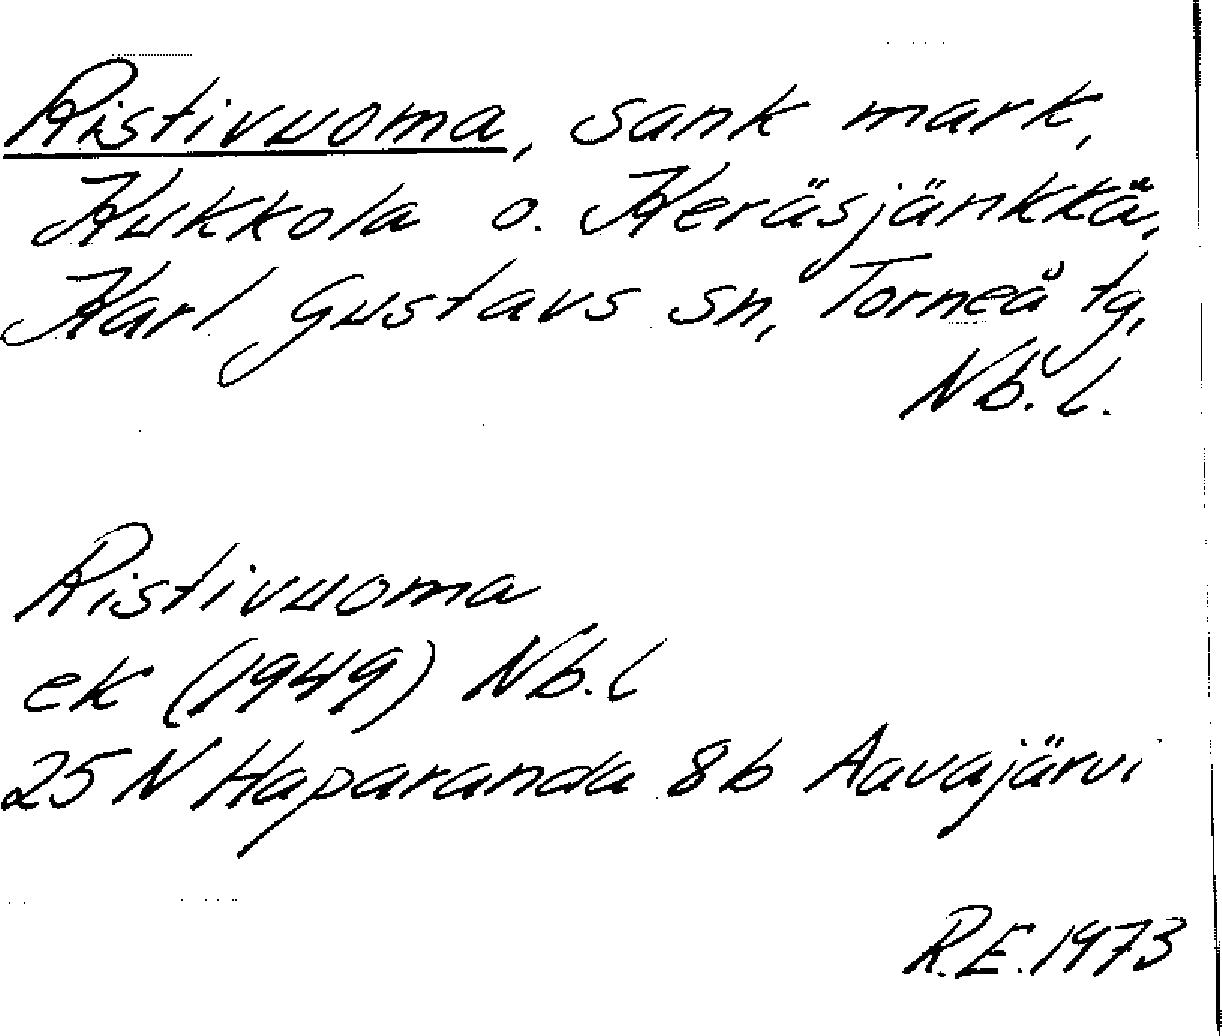 Ristivuoma, sank mark,
Kukkola o. Keräsjänkkä,
Karl Gustavs sn, Torneå tg,
Nb. l.
Ristivuoma
ek (1949) Nb. l
25 N Haparanda 8b Aavajärvi
R.E. 1973